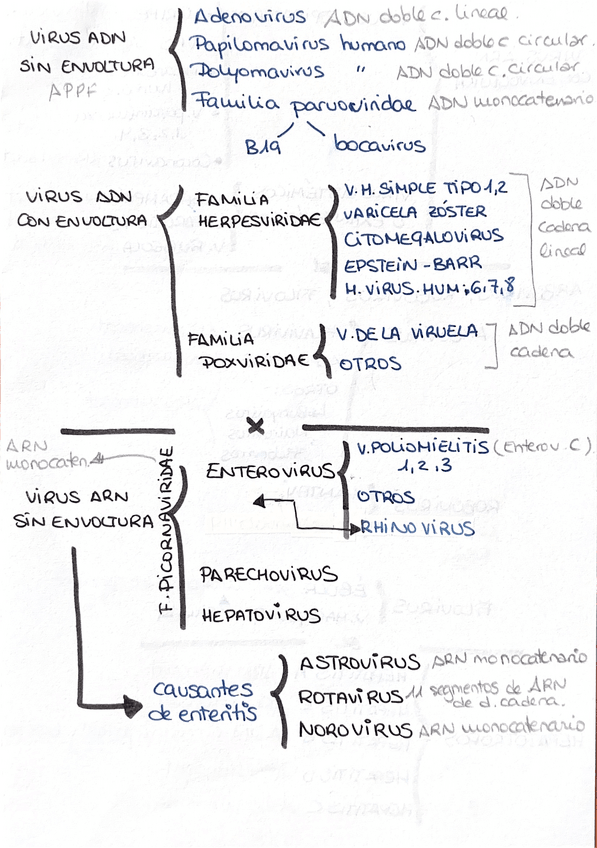 Adenovirus ADN doble c. lineal.
VIRUS ADN
SIN ENVOLTURA
APPF
Papilomavirus humano ADN doble c circular.
Polyomavirus " ADN doble c. Circular
Familia parvoviridae ADN monocatenario
B19 bocavirus
VIRUS ADN
CON ENVOLTURA
FAMILIA
HERPESVIRIDAE
V. H. SIMPLE TIPO 1,2
VARICELA ZÓSTER
CITOMEGALOVIRUS
EPSTEIN-BARR
H. VIRUS. HUM; 6,7,8
ADN
doble
cadena
lineal
FAMILIA
POXVIRIDAE
V. DE LA VIRUELA
OTROS
ADN doble
cadena
ARN
monocaten.
VIRUS ARN
SIN ENVOLTURA
F. PICORNAVIRIDAE
ENTEROVIRUS
V. POLIOMIELITIS (Enterov. C).
1,2,3
OTROS
RHINOVIRUS
PARECHOVIRUS
HEPATOVIRUS
causantes
de enteritis
ASTROVIRUS ARN monocatenario
ROTAVIRUS 11 segmentos de ARN
de d. cadena.
NOROVIRUS ARN monocatenario